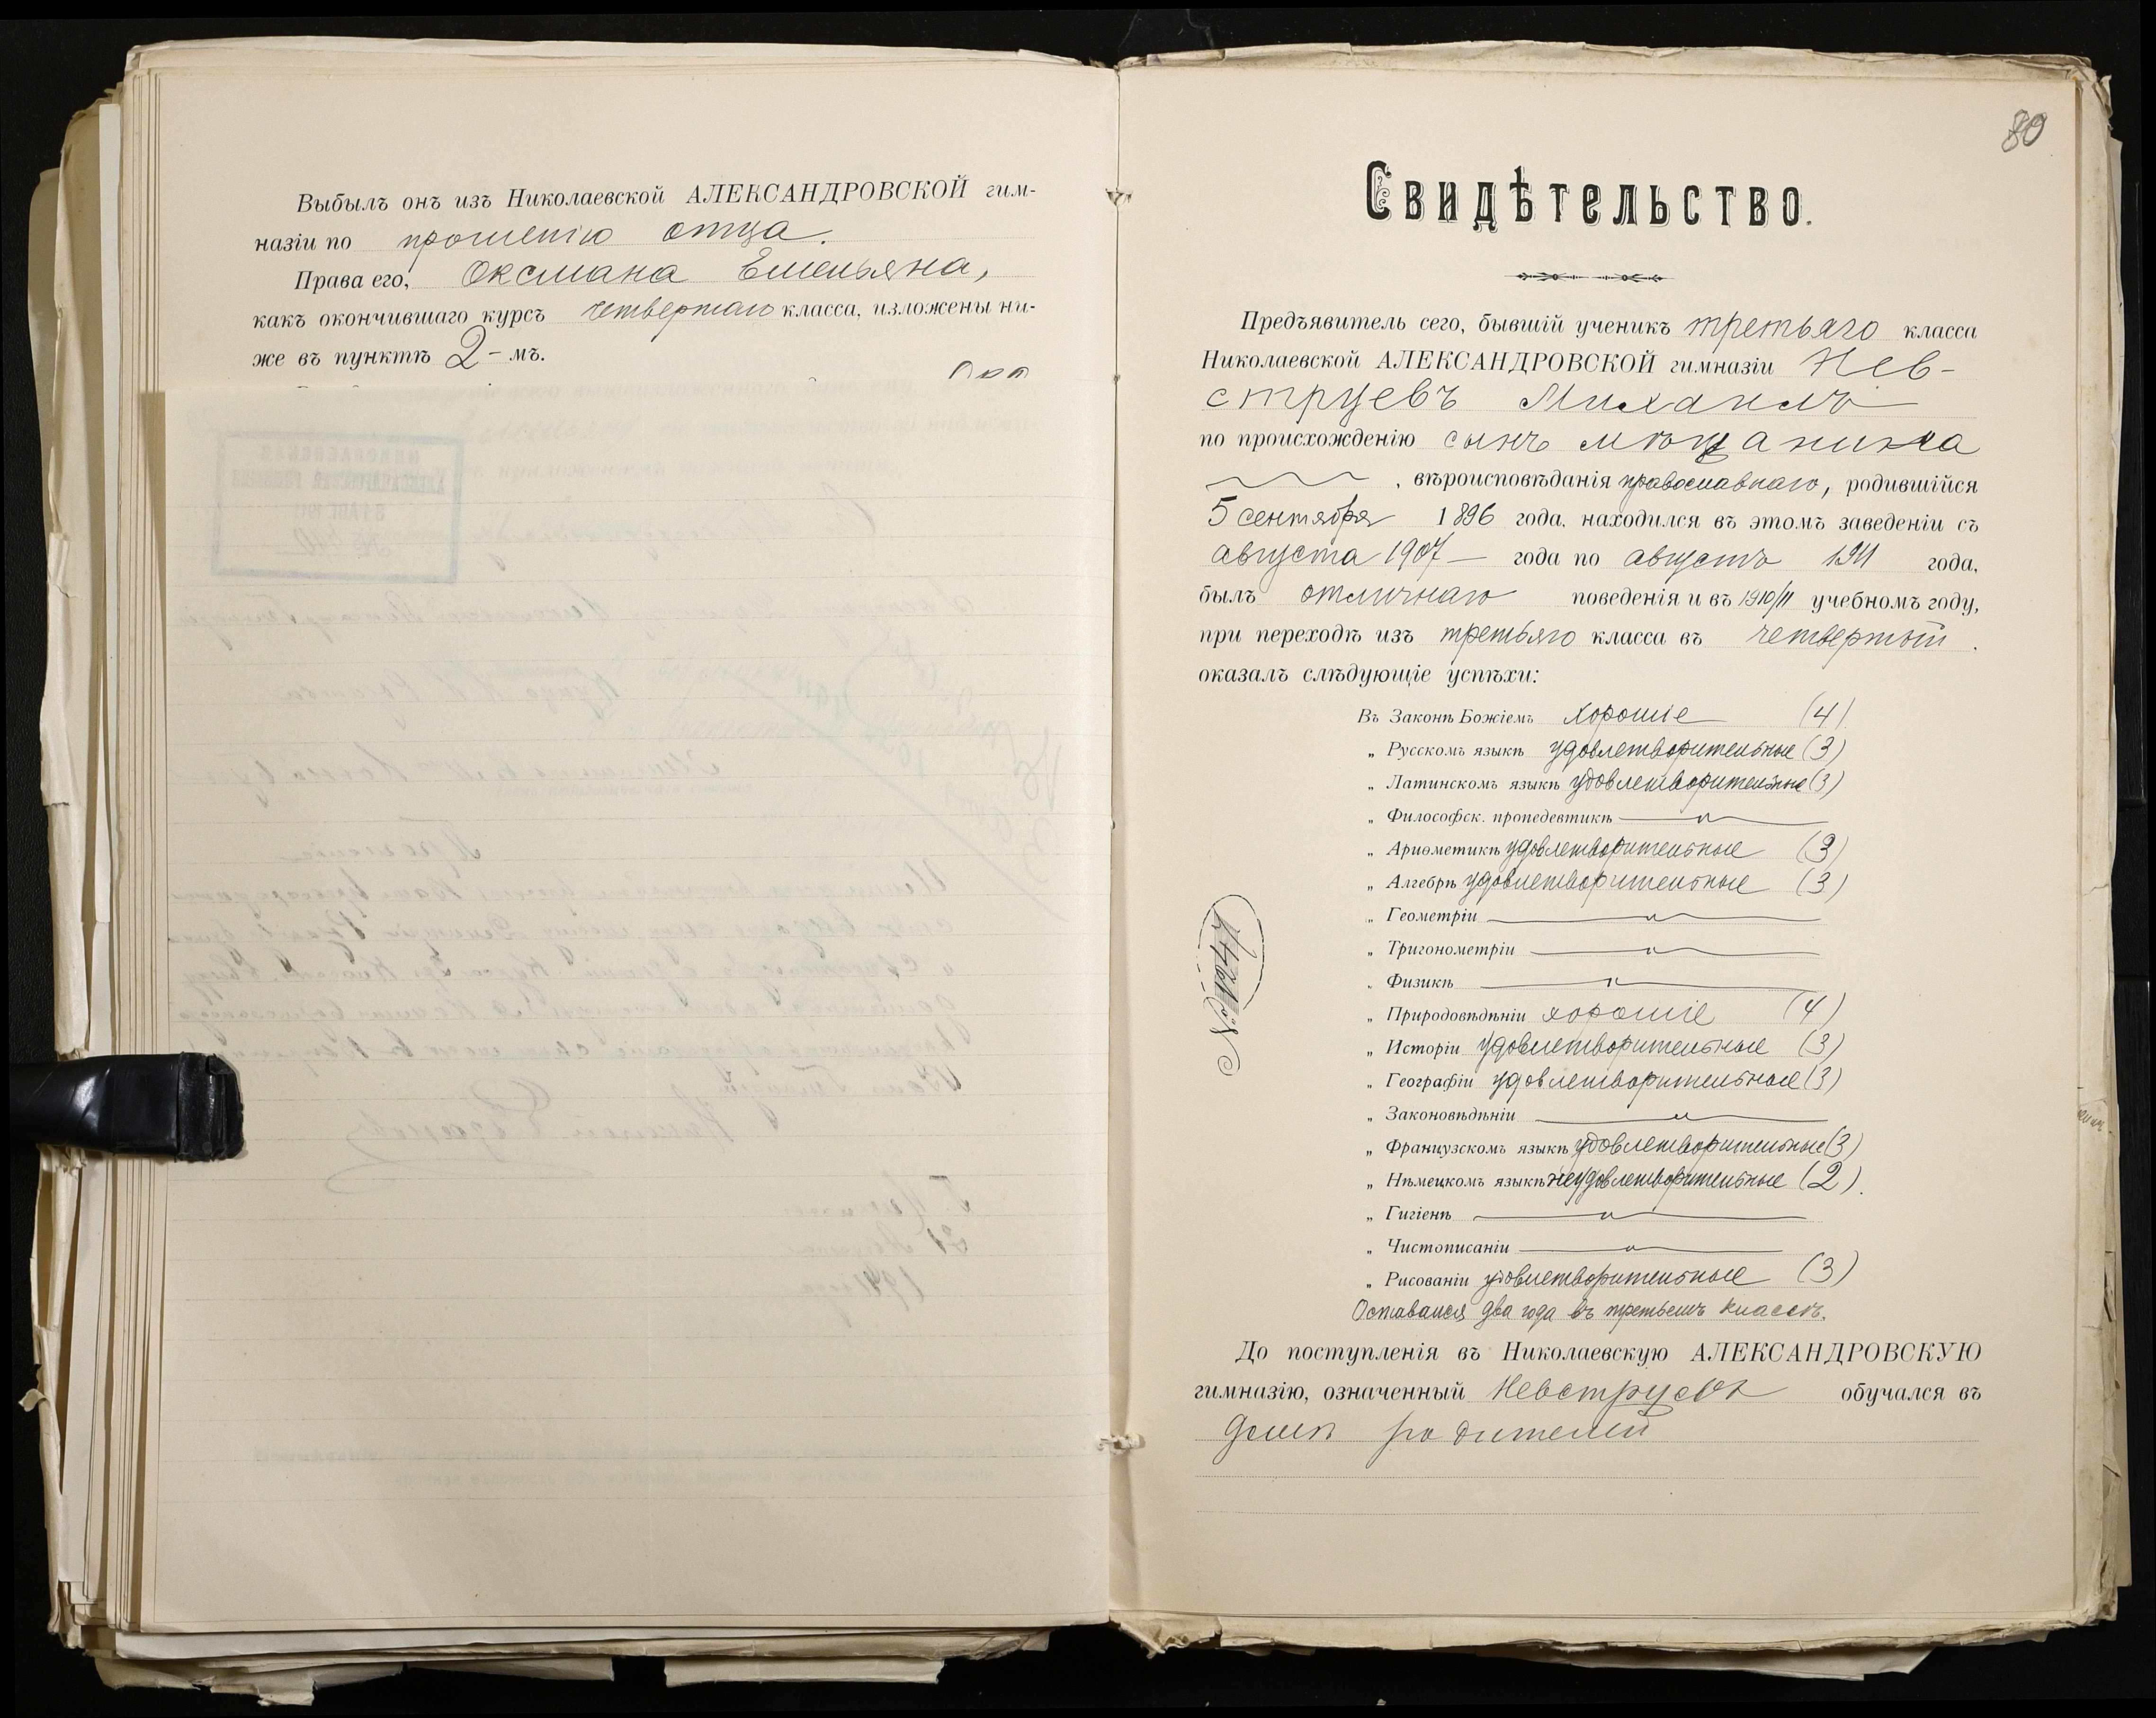 Выбылъ онъ изъ Николаевской АЛЕКСАНДРОВСКОЙ гим-
назіи по прошенію отца.
Права его, Оксмана Емельяна,
какъ окончившаго курсъ четвертаго класса, изложены ни-
же въ пунктѣ 2-мъ.
80
Свидѣтельство.
Предъявитель сего, бывшій ученикъ третьяго класса
Николаевской АЛЕКСАНДРОВСКОЙ гимназіи Нев-
струевъ Михаилъ
по происхожденію сынъ мѣщанина
, вѣроисповѣданія православнаго, родившійся
5 сентября 1896 года, находился въ этомъ заведеніи съ
августа 1907 года по августъ 1911 года,
былъ отличнаго поведенія и въ 1910/11 учебномъ году,
при переходѣ изъ третьяго класса въ четвертый.
оказалъ слѣдующіе успѣхи:
Въ Законѣ Божіемъ хорошіе (4)
„ Русскомъ языкѣ удовлетворительные (3)
„ Латинскомъ языкѣ удовлетворительные (3)
„ Философск. пропедевтикѣ
„ Ариѳметикѣ удовлетворительные (3)
„ Алгебрѣ удовлетворительные (3)
„ Геометріи
„ Тригонометріи
„ Физикѣ
„ Природовѣдѣніи хорошіе (4)
„ Исторіи удовлетворительные (3)
„ Географіи удовлетворительные (3)
„ Законовѣдѣніи
„ Французскомъ языкѣ удовлетворительные (3)
„ Нѣмецкомъ языкѣ неудовлетворительные (2).
„ Гигіенѣ
„ Чистописаніи
„ Рисованіи удовлетворительные (3)
Оставался два года въ третьемъ классѣ.
До поступленія въ Николаевскую АЛЕКСАНДРОВСКУЮ
гимназію, означенный Невструевъ обучался въ
домѣ родителей